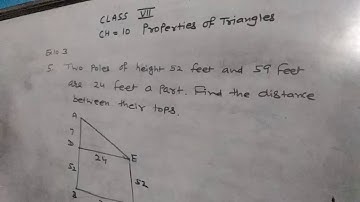 CLASS VII
CH = 10 Properties of Triangles
5. Two poles of height 52 feet and 59 feet
are 24 feet a part. Find the distance
between their tops.
A
?
D
24
E
52
52
B